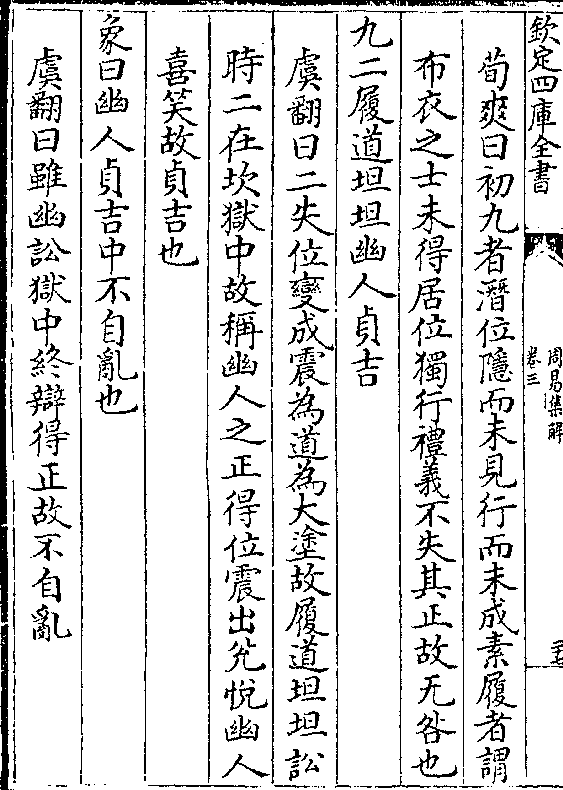 欽定四庫全書
周易集解
卷三
二十七
荀爽曰初九者潛位隱而未見行而未成素履者謂
布衣之士未得居位獨行禮義不失其正故无咎也
九二履道坦坦幽人貞吉
虞翻曰二失位變成震為道為大塗故履道坦坦訟
時二在坎獄中故稱幽人之正得位震出兊悅幽人
喜笑故貞吉也
象曰幽人貞吉中不自亂也
虞翻曰雖幽訟獄中終辯得正故不自亂